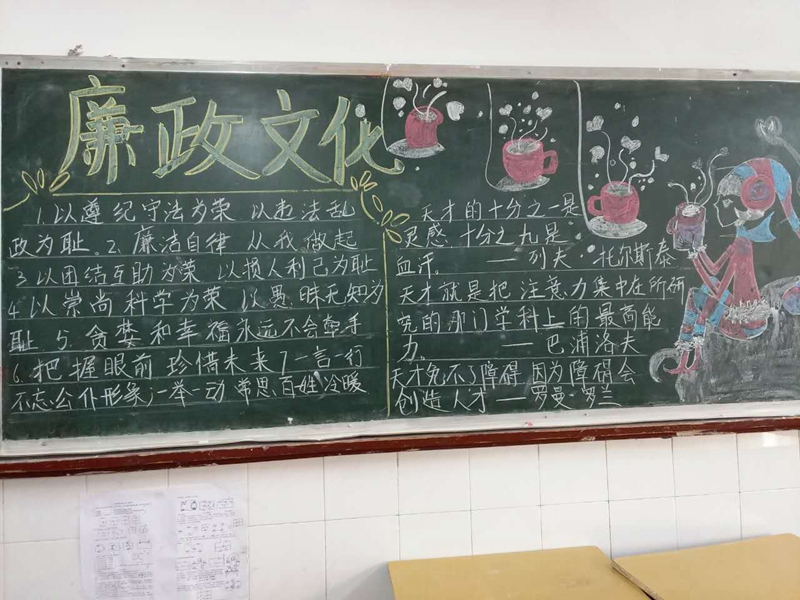 廉政文化
1.以遵纪守法为荣 以违法乱
政为耻.2.廉洁自律 从我做起
3.以团结互助为荣 以损人利己为耻
4.以崇尚科学为荣 以愚昧无知为
耻 5.贪婪和幸福永远不会牵手
6.把握眼前 珍惜未来 7一言一行
不忘公仆形象,一举一动 常思百姓冷暖
天才的十分之一是
灵感 十分之九是
血汗. ——列夫·托尔斯泰
天才就是把注意力集中在所研
究的那门学科上的最高能
力. ——巴浦洛夫
天才免不了障碍 因为障碍会
创造人才——罗曼·罗兰